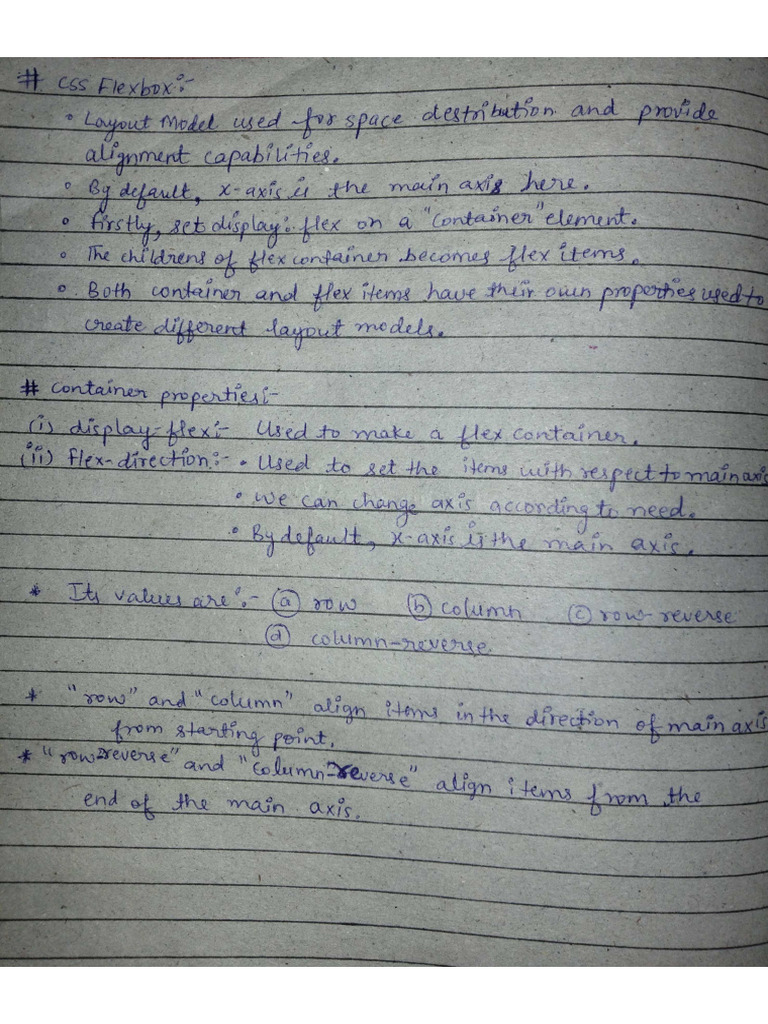 # CSS Flexbox:-
• Layout Model used for space destribution and provide
alignment capabilities.
• By default, x-axis is the main axis here.
• firstly, set display: flex on a "container" element.
• The childrens of flex container becomes flex items.
• Both container and flex items have their own properties used to
create different layout models.
# Container properties:-
(i) display-flex:- Used to make a flex container.
(ii) flex-direction:- • Used to set the items with respect to main axis
• We can change axis according to need.
• By default, x-axis is the main axis.
* Its values are:- (a) row (b) column (c) row-reverse
(d) column-reverse
* "row" and "column" align items in the direction of main axis
from starting point.
* "row-reverse" and "column-reverse" align items from the
end of the main axis.